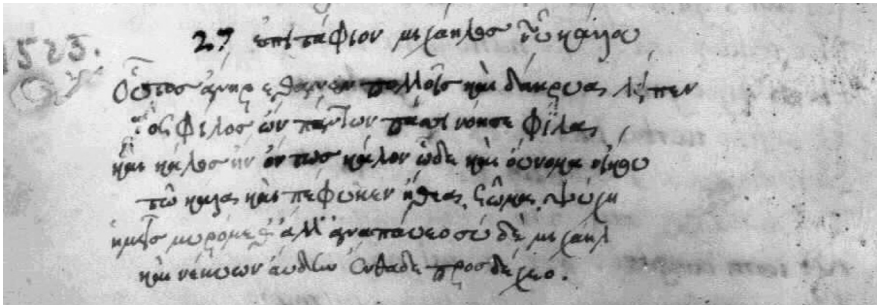 1523.
27 ἐπιτάφιον μιχαήλοσ τοῦ κάλου
Οὗτοσ ἀνηρ ἔθανεν πολλοῖσ καὶ δάκρυα λίπεν
ὃς φίλοσ ὢν πάντων πάσι νόησε φίλα,
καὶ κάλοσ ἦν ὄντωσ κάλον ὧδε καὶ οὔνομα
τῶ καὶ πέφυκεν σῶμα, ψύχη
ἡμεῖσ μυρόμεθ' ἀλλ' ἀναπαύεο σὺ δὲ μιχαήλ
καὶ νέκυων ἐνθάδε προσδέχεο.